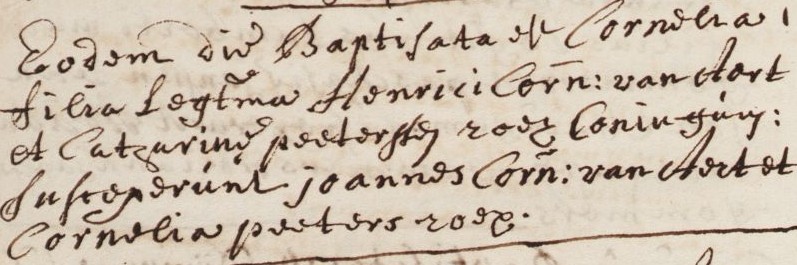 Eodem die Baptisata est Cornelia
filia Legtma Henrici Corn: van Aert
et Catharinę peeters roex Coniugum:
susceperunt joannes Corn: van Aert et
Cornelia peeters roex.